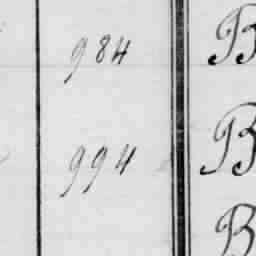 984 B
994 B
B